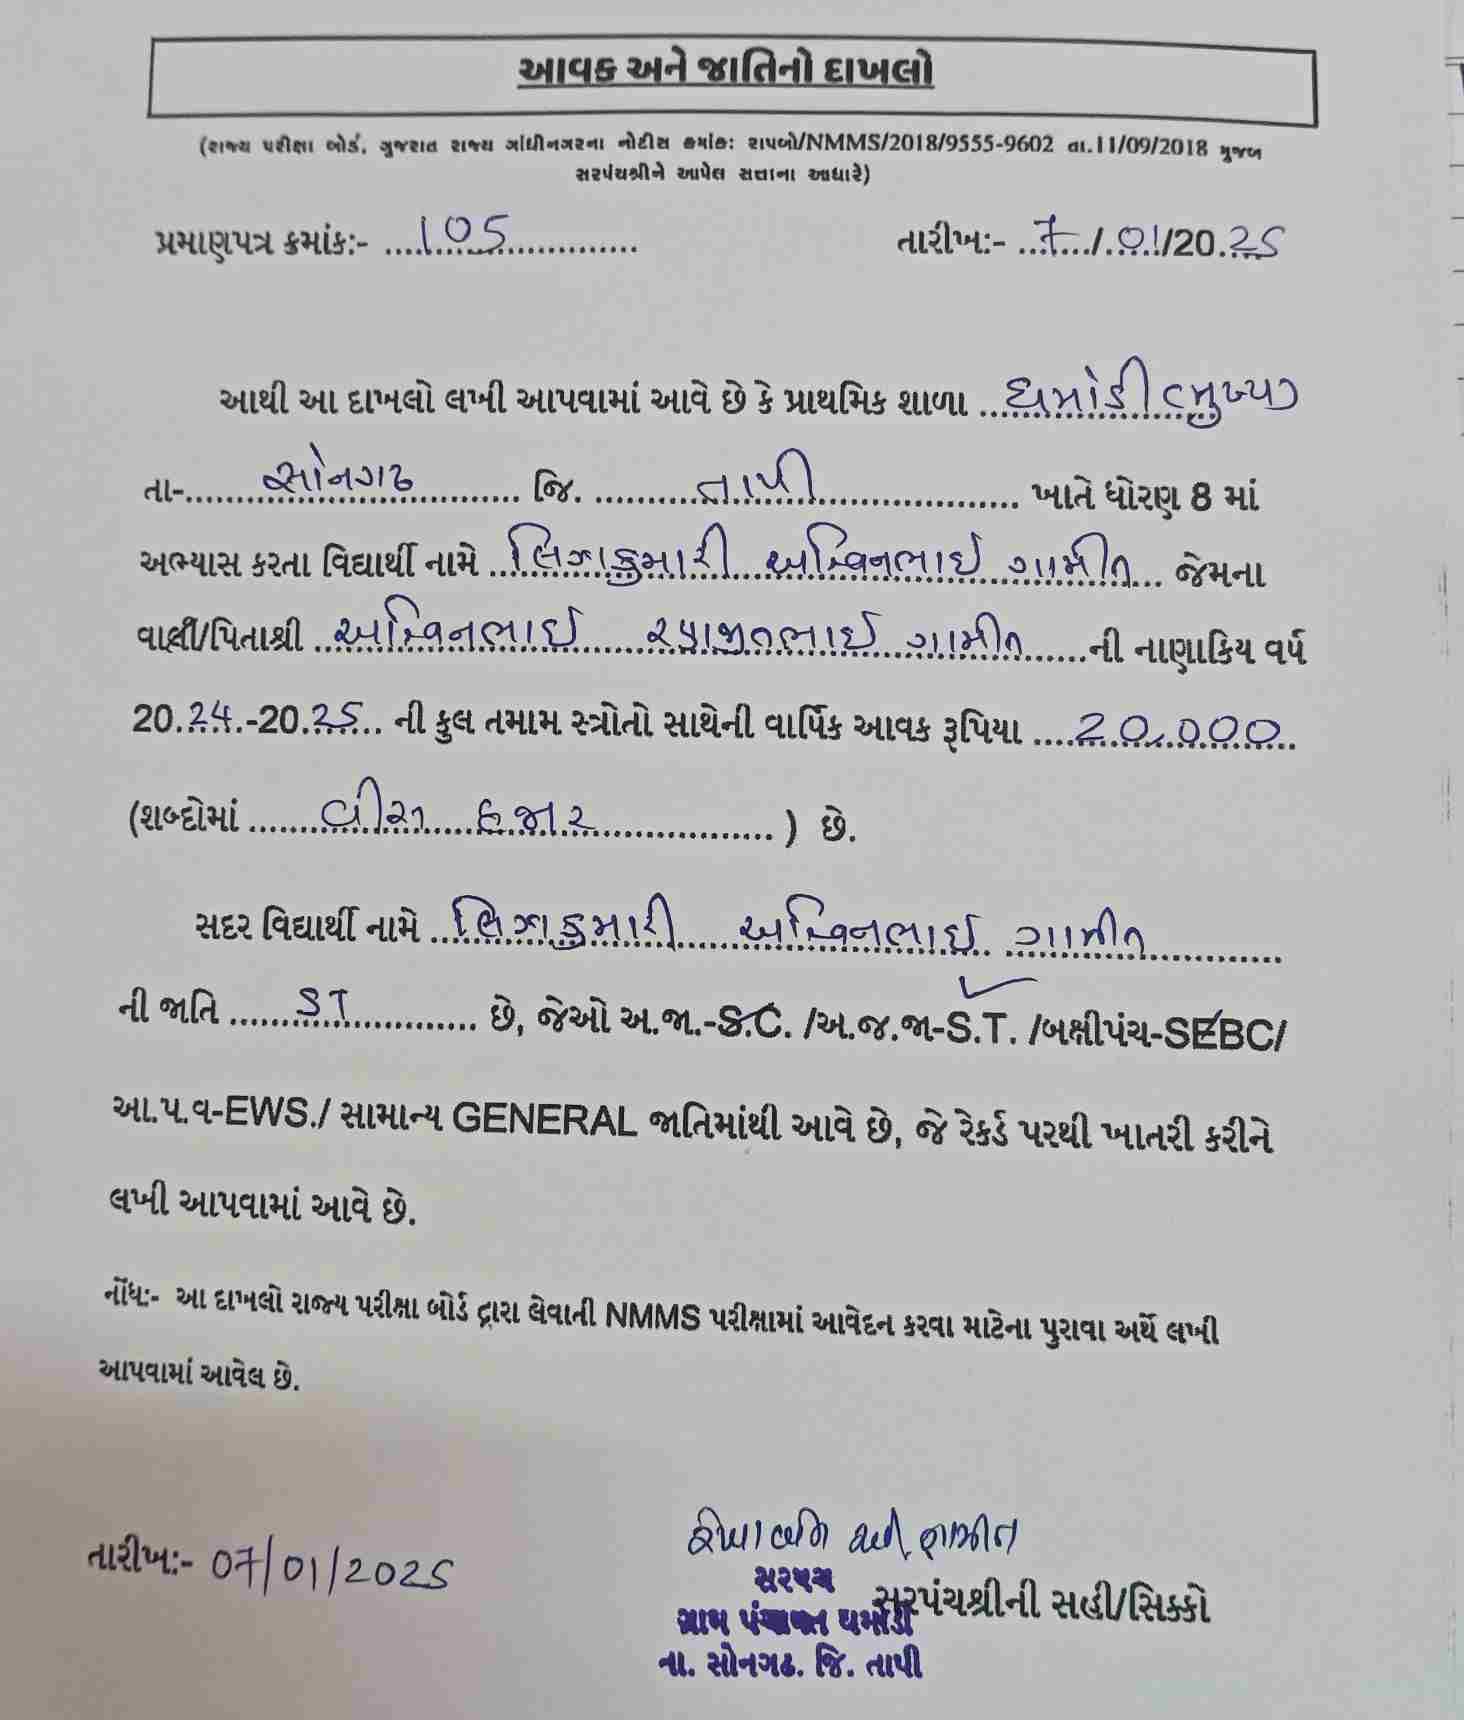 આવક અને જાતિનો દાખલો
(રાજ્ય પરીક્ષા બોર્ડ, ગુજરાત રાજ્ય ગાંધીનગરના નોટીસ ક્રમાંક: રાપબો/NMMS/2018/9555-9602 તા.11/09/2018 મુજબ
સરપંચશ્રીને આપેલ સત્તાના આધારે)
પ્રમાણપત્ર ક્રમાંક:- ....105.... તારીખ:- ...7.../.01./20.25
આથી આ દાખલો લખી આપવામાં આવે છે કે પ્રાથમિક શાળા ..ઘમોડી (મુખ્ય)
તા-.....સોનગઢ..... જિ. .....તાપી..... ખાતે ધોરણ 8 માં
અભ્યાસ કરતા વિદ્યાર્થી નામે ..લિઝાકુમારી અશ્વિનભાઈ ગામીત... જેમના
વાલી/પિતાશ્રી ..અશ્વિનભાઈ રણજીતભાઈ ગામીત.....ની નાણાકિય વર્ષ
20.24.-20.25.. ની કુલ તમામ સ્ત્રોતો સાથેની વાર્ષિક આવક રૂપિયા ...20,000..
(શબ્દોમાં .....વીસ હજાર.....) છે.
સદર વિદ્યાર્થી નામે ..લિઝાકુમારી અશ્વિનભાઈ ગામીત.....
ની જાતિ .....ST..... છે, જેઓ અ.જા.-S.C. /અ.જ.જા-S.T. /બક્ષીપંચ-SEBC/
આ.પ.વ-EWS./ સામાન્ય GENERAL જાતિમાંથી આવે છે, જે રેકર્ડ પરથી ખાતરી કરીને
લખી આપવામાં આવે છે.
નોંધ:- આ દાખલો રાજ્ય પરીક્ષા બોર્ડ દ્વારા લેવાતી NMMS પરીક્ષામાં આવેદન કરવા માટેના પુરાવા અર્થે લખી
આપવામાં આવેલ છે.
ગામીત
તારીખ:- 07/01/2025
સરપંચ
સરપંચશ્રીની સહી/સિક્કો
ગ્રામ પંચાયત ઘમોડી
તા. સોનગઢ. જિ. તાપી